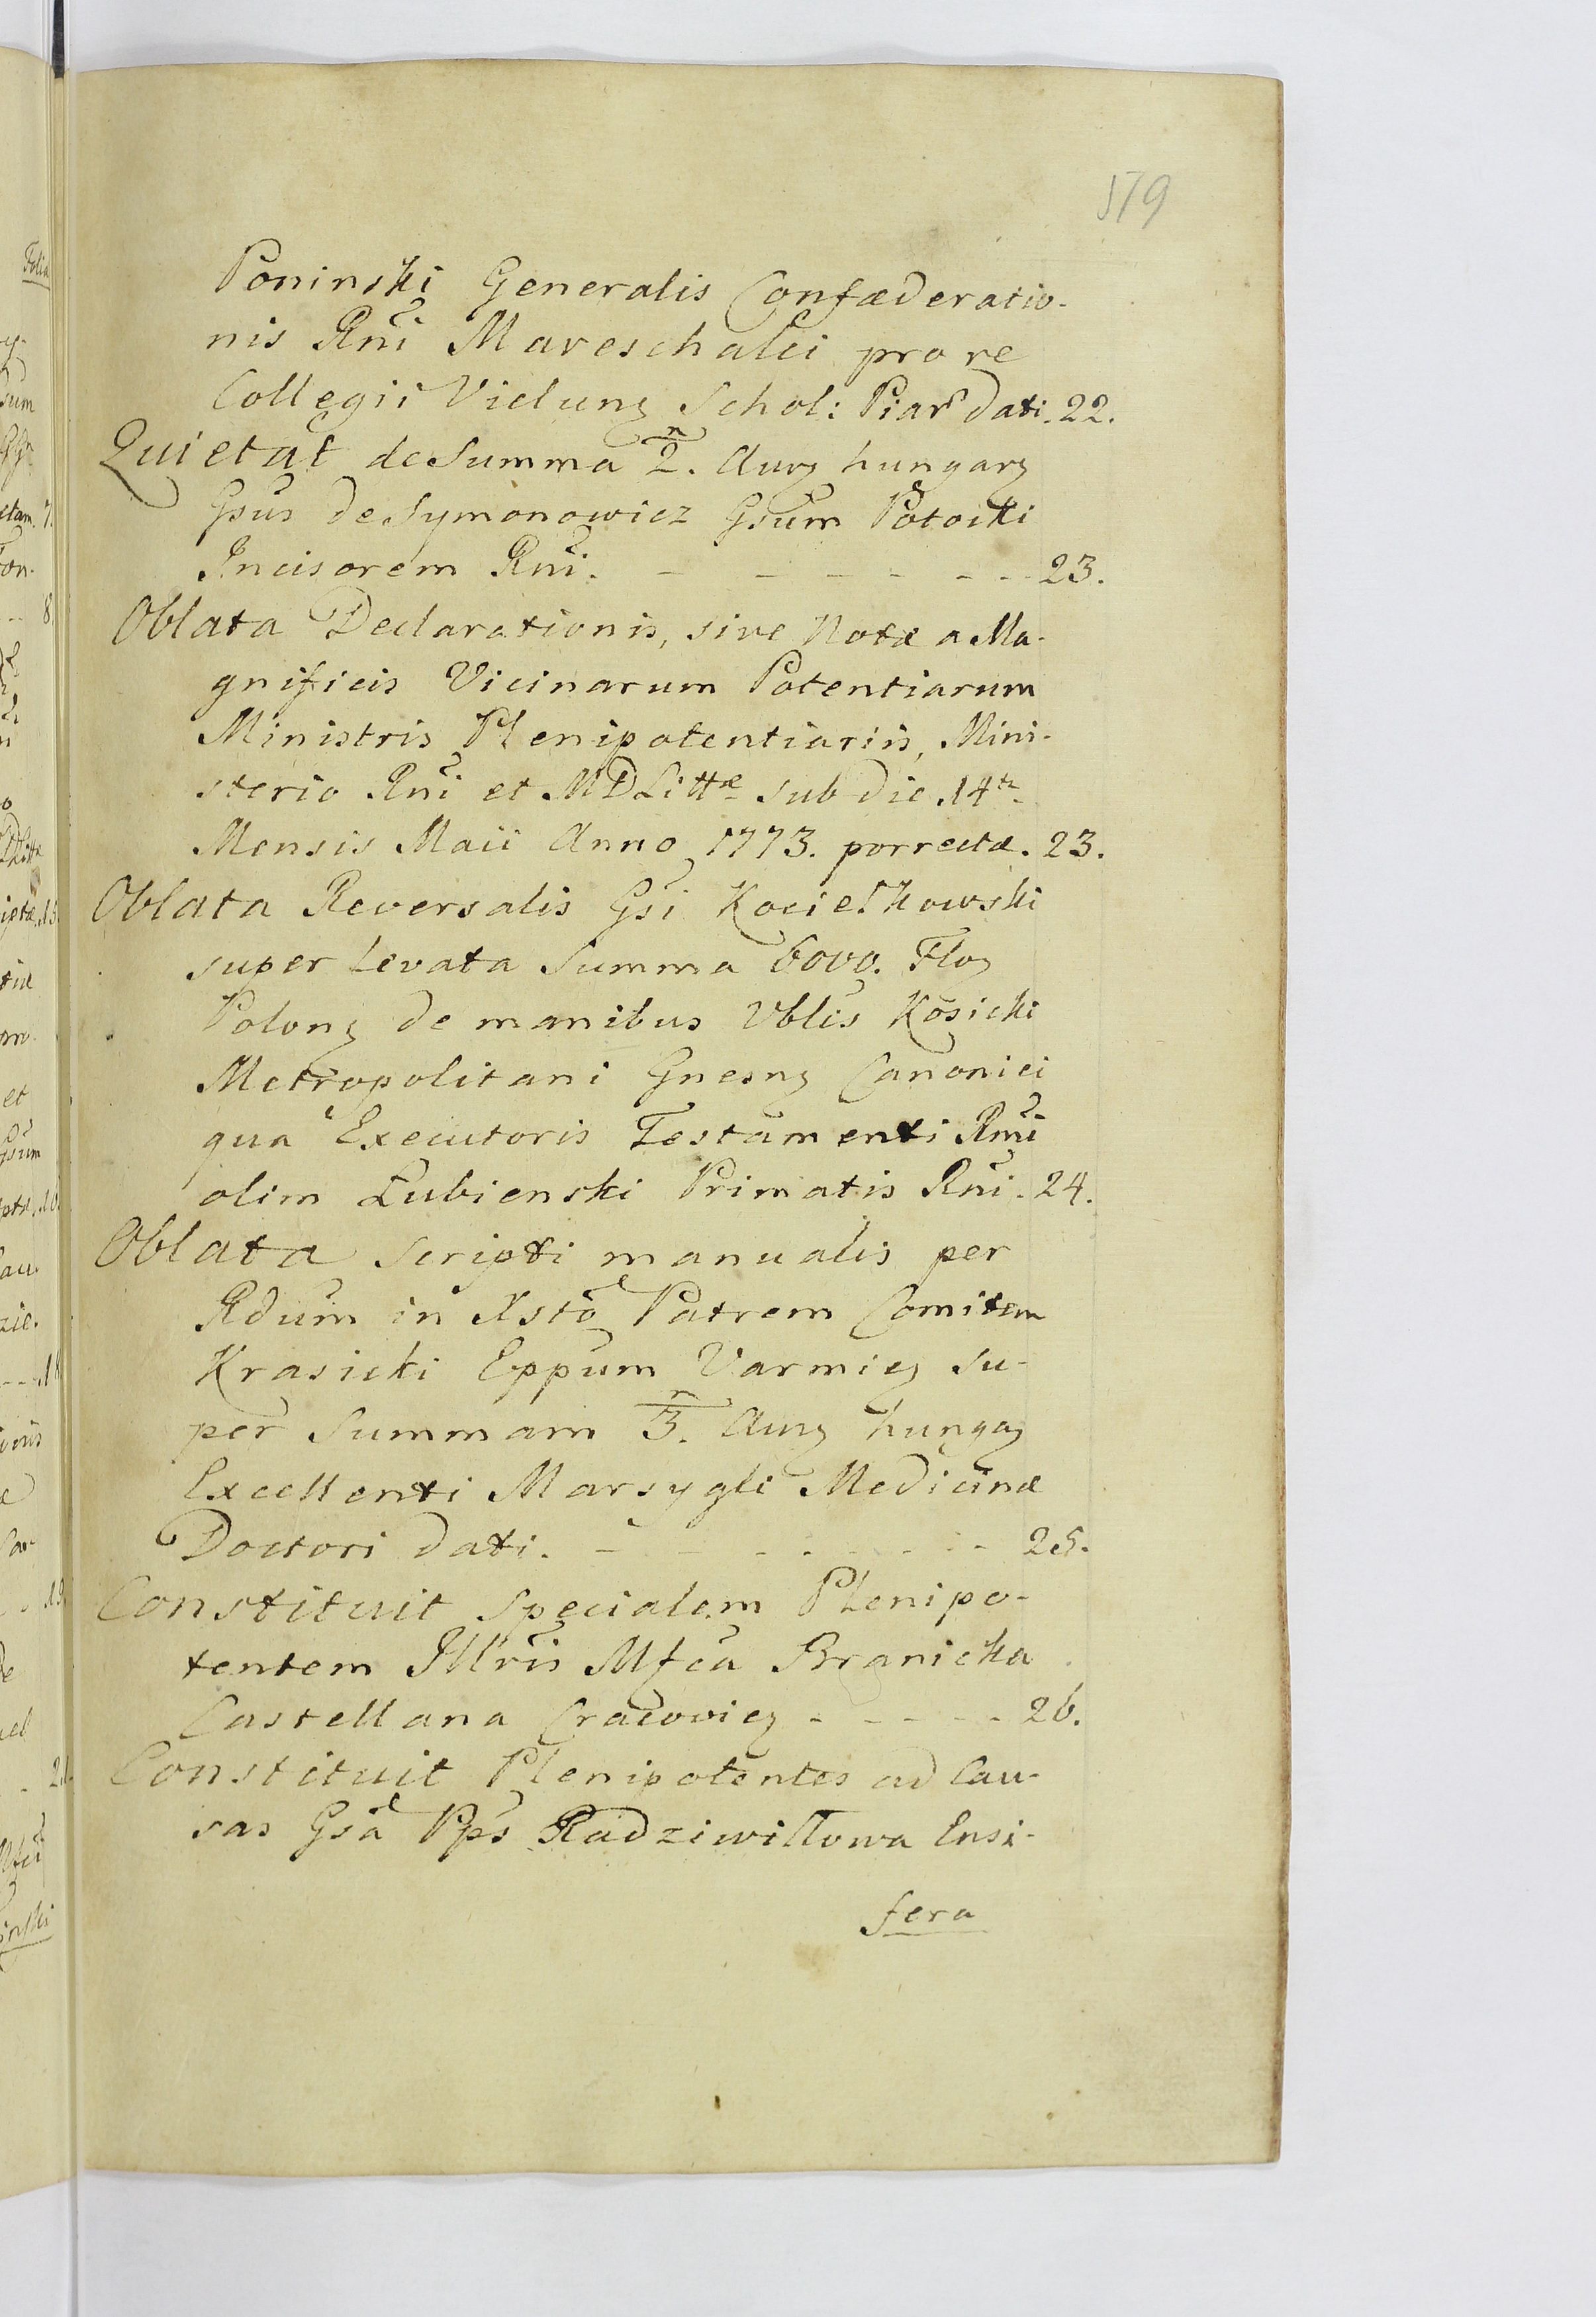 579
Poninski Generalis Confæderatio-
nis Rnĩ Mareschalci pro re
Collegii Vielung Schol: Piarũ dati. 22.
Quietat de Summa 2̄ⁿ. Aurg hungarg
Gsus de Symonowicz Gsum Potocki
Incisorem Rnĩ. - - - - - - 23.
Oblata Declarationis, sive Notæ a Ma-
gnificis Vicinarum Potentiarum
Ministris Plenipotentiariis, Mini-
sterio Rnĩ et MDLittæ sub die 14ta
Mensis Maii Anno 1773. porrectæ. 23.
Oblata Reversalis Gsi Kociełkowski
super levata Summa 6000. Flog
Polong de manibus Vblis Kosicki
Metropolitani Gnesng Canonici
qua Executoris Testamenti Rmĩ
olim Łubienski Primatis Rnĩ. 24.
Oblata Scripti manualis per
Rdum in Xsto Patrem Comitem
Krasicki Eppum Varmieg su-
per Summam 3̄ⁿ. Aurg hungag
Excellenti Marsygli Medicinæ
Doctori dati. - - - - - - - 25.
Constituit Specialem Plenipo-
tentem Illris Mfca Branicka
Castellana Cracovieg - - - - - 26.
Constituit Plenipotentes ad Cau-
sas Gsa Pps Radziwiłłowa Ensi-
fera